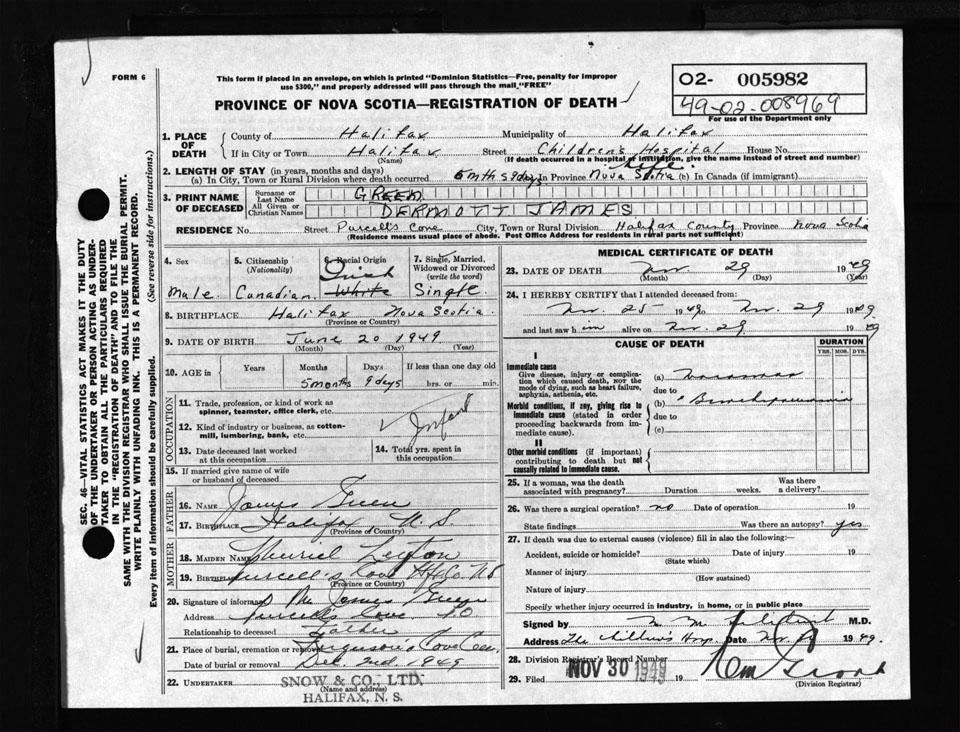 FORM 6
This form if placed in an envelope, on which is printed "Dominion Statistics—Free, penalty for improper
use $300," and properly addressed will pass through the mail, "FREE"
PROVINCE OF NOVA SCOTIA—REGISTRATION OF DEATH
02- 005982
49-02-008969
For use of the Department only
SEC. 46—VITAL STATISTICS ACT MAKES IT THE DUTY
OF THE UNDERTAKER OR PERSON ACTING AS UNDER-
TAKER TO OBTAIN ALL THE PARTICULARS REQUIRED
IN THE "REGISTRATION OF DEATH" AND TO FILE THE
SAME WITH THE DIVISION REGISTRAR WHO SHALL ISSUE THE BURIAL PERMIT.
WRITE PLAINLY WITH UNFADING INK. THIS IS A PERMANENT RECORD.
Every item of information should be carefully supplied. (See reverse side for instructions.)
1. PLACE OF DEATH County of Halifax Municipality of Halifax
If in City or Town Halifax Street Children's Hospital House No.
(Name) (If death occurred in a hospital or institution, give the name instead of street and number)
2. LENGTH OF STAY (in years, months and days) life.
(a) In City, Town or Rural Division where death occurred 5 mths 9 days In Province Nova Scotia (b) In Canada (if immigrant)
3. PRINT NAME OF DECEASED Surname or Last Name GREEN
All Given or Christian Names DERMOTT JAMES
RESIDENCE No. Street Purcell's Cove City, Town or Rural Division Halifax County Province Nova Scotia
(Residence means usual place of abode. Post Office Address for residents in rural parts not sufficient)
4. Sex Male
5. Citizenship (Nationality) Canadian
6. Racial Origin Irish White
7. Single, Married, Widowed or Divorced (write the word) Single
8. BIRTHPLACE Halifax Nova Scotia
(Province or Country)
9. DATE OF BIRTH June 20 1949
(Month) (Day) (Year)
10. AGE in Years Months Days If less than one day old
5 months 9 days hrs. or min.
OCCUPATION
11. Trade, profession, or kind of work as spinner, teamster, office clerk, etc.
12. Kind of industry or business, as cotton-mill, lumbering, bank, etc. Infant
13. Date deceased last worked at this occupation
14. Total yrs. spent in this occupation
15. If married give name of wife or husband of deceased
FATHER
16. NAME James Green
17. BIRTHPLACE Halifax N. S.
(Province or Country)
MOTHER
18. MAIDEN NAME Muriel
19. BIRTHPLACE Purcell's Cove Hfx Co. N S
(Province or Country)
20. Signature of informant James Green
Address Purcells Cove
Relationship to deceased Father
21. Place of burial, cremation or removal Ferguson's Cove Cem.
Date of burial or removal Dec. 2nd. 1949
22. UNDERTAKER SNOW & CO., LTD.
(Name and address)
HALIFAX, N. S.
MEDICAL CERTIFICATE OF DEATH
23. DATE OF DEATH Nov 29 1949
(Month) (Day) (Year)
24. I HEREBY CERTIFY that I attended deceased from:
Nov. 25 1949 to Nov. 29 1949
and last saw him alive on Nov. 29 1949
CAUSE OF DEATH
DURATION
YRS. MOS. DYS.
I
Immediate cause
Give disease, injury or complication which caused death, NOT the mode of dying, such as heart failure, asphyxia, asthenia, etc.
(a)
due to
Morbid conditions, if any, giving rise to immediate cause (stated in order proceeding backwards from immediate cause).
(b) Bronchopneumonia
due to
(c)
II
Other morbid conditions (if important) contributing to death but not causally related to immediate cause.
25. If a woman, was the death associated with pregnancy? Duration weeks. Was there a delivery?
26. Was there a surgical operation? no Date of operation 19
State findings Was there an autopsy? yes
27. If death was due to external causes (violence) fill in also the following:
Accident, suicide or homicide? Date of injury 19
(State which)
Manner of injury
(How sustained)
Nature of injury
Specify whether injury occurred in industry, in home, or in public place
Signed by M.D.
Address The Children's Hosp. Date Nov. 1949.
28. Division Registrar's Record Number
29. Filed NOV 30 1949 19
(Division Registrar)